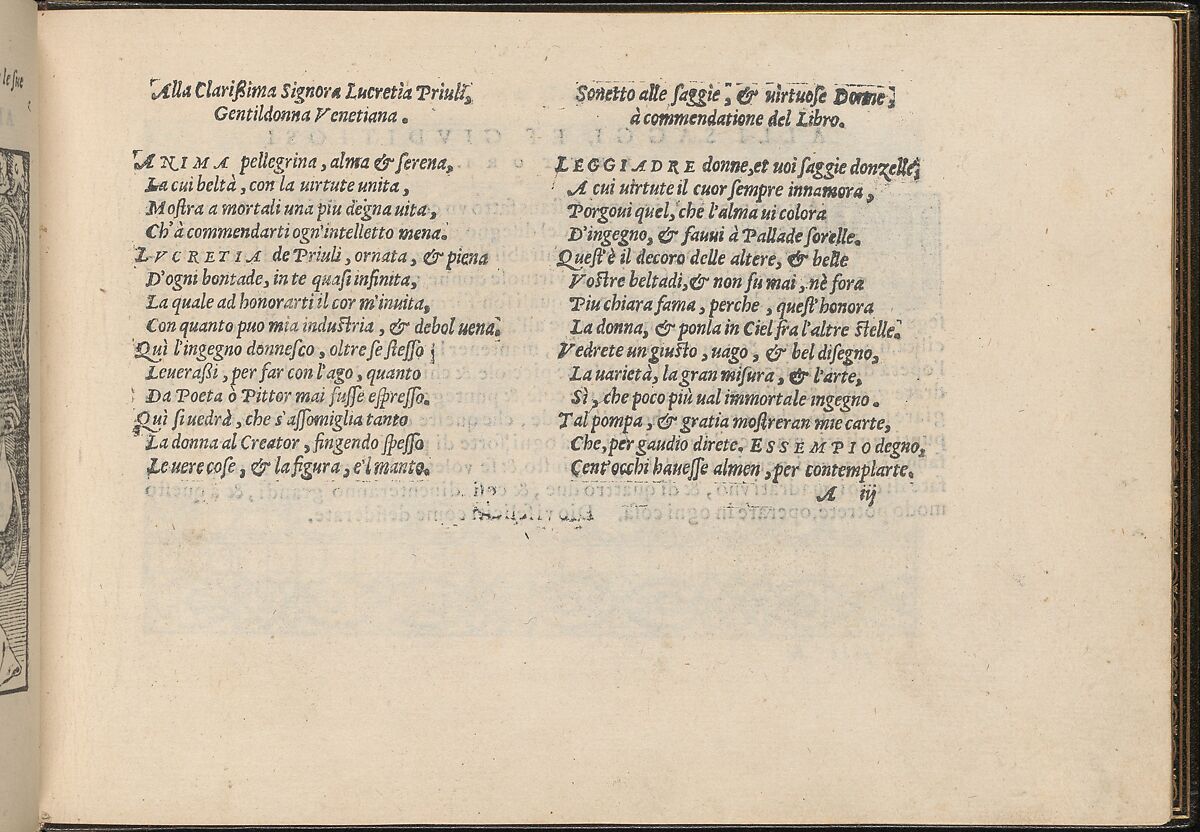 Alla Clarißima Signora Lucretia Priuli,
Gentildonna Venetiana.
ANIMA pellegrina, alma & serena,
La cui beltà, con la uirtute unita,
Mostra a mortali una piu degna uita,
Ch'à commendarti ogn'intelletto mena.
LVCRETIA de Priuli, ornata, & piena
D'ogni bontade, in te quasi infinita,
La quale ad honorarti il cor m'inuita,
Con quanto puo mia industria, & debol uena.
Quì l'ingegno donnesco, oltre se stesso
Leueraßi, per far con l'ago, quanto
Da Poeta ò Pittor mai fusse espresso.
Quì si uedrà, che s'assomiglia tanto
La donna al Creator, fingendo spesso
Le uere cose, & la figura, e'l manto.
Sonetto alle saggie, & uirtuose Donne,
à commendatione del Libro.
LEGGIADRE donne, et uoi saggie donzelle,
A cui uirtute il cuor sempre innamora,
Porgoui quel, che l'alma ui colora
D'ingegno, & fauui à Pallade sorelle.
Quest'è il decoro delle altere, & belle
Vostre beltadi, & non fu mai, nè fora
Piu chiara fama, perche, quest'honora
La donna, & ponla in Ciel fra l'altre stelle.
Vedrete un giusto, uago, & bel disegno,
La uarietà, la gran misura, & l'arte,
Sì, che poco più ual immortale ingegno.
Tal pompa, & gratia mostreran mie carte,
Che, per gaudio direte. ESSEMPIO degno,
Cent'occhi hauesse almen, per contemplarte.
A iij
le sue